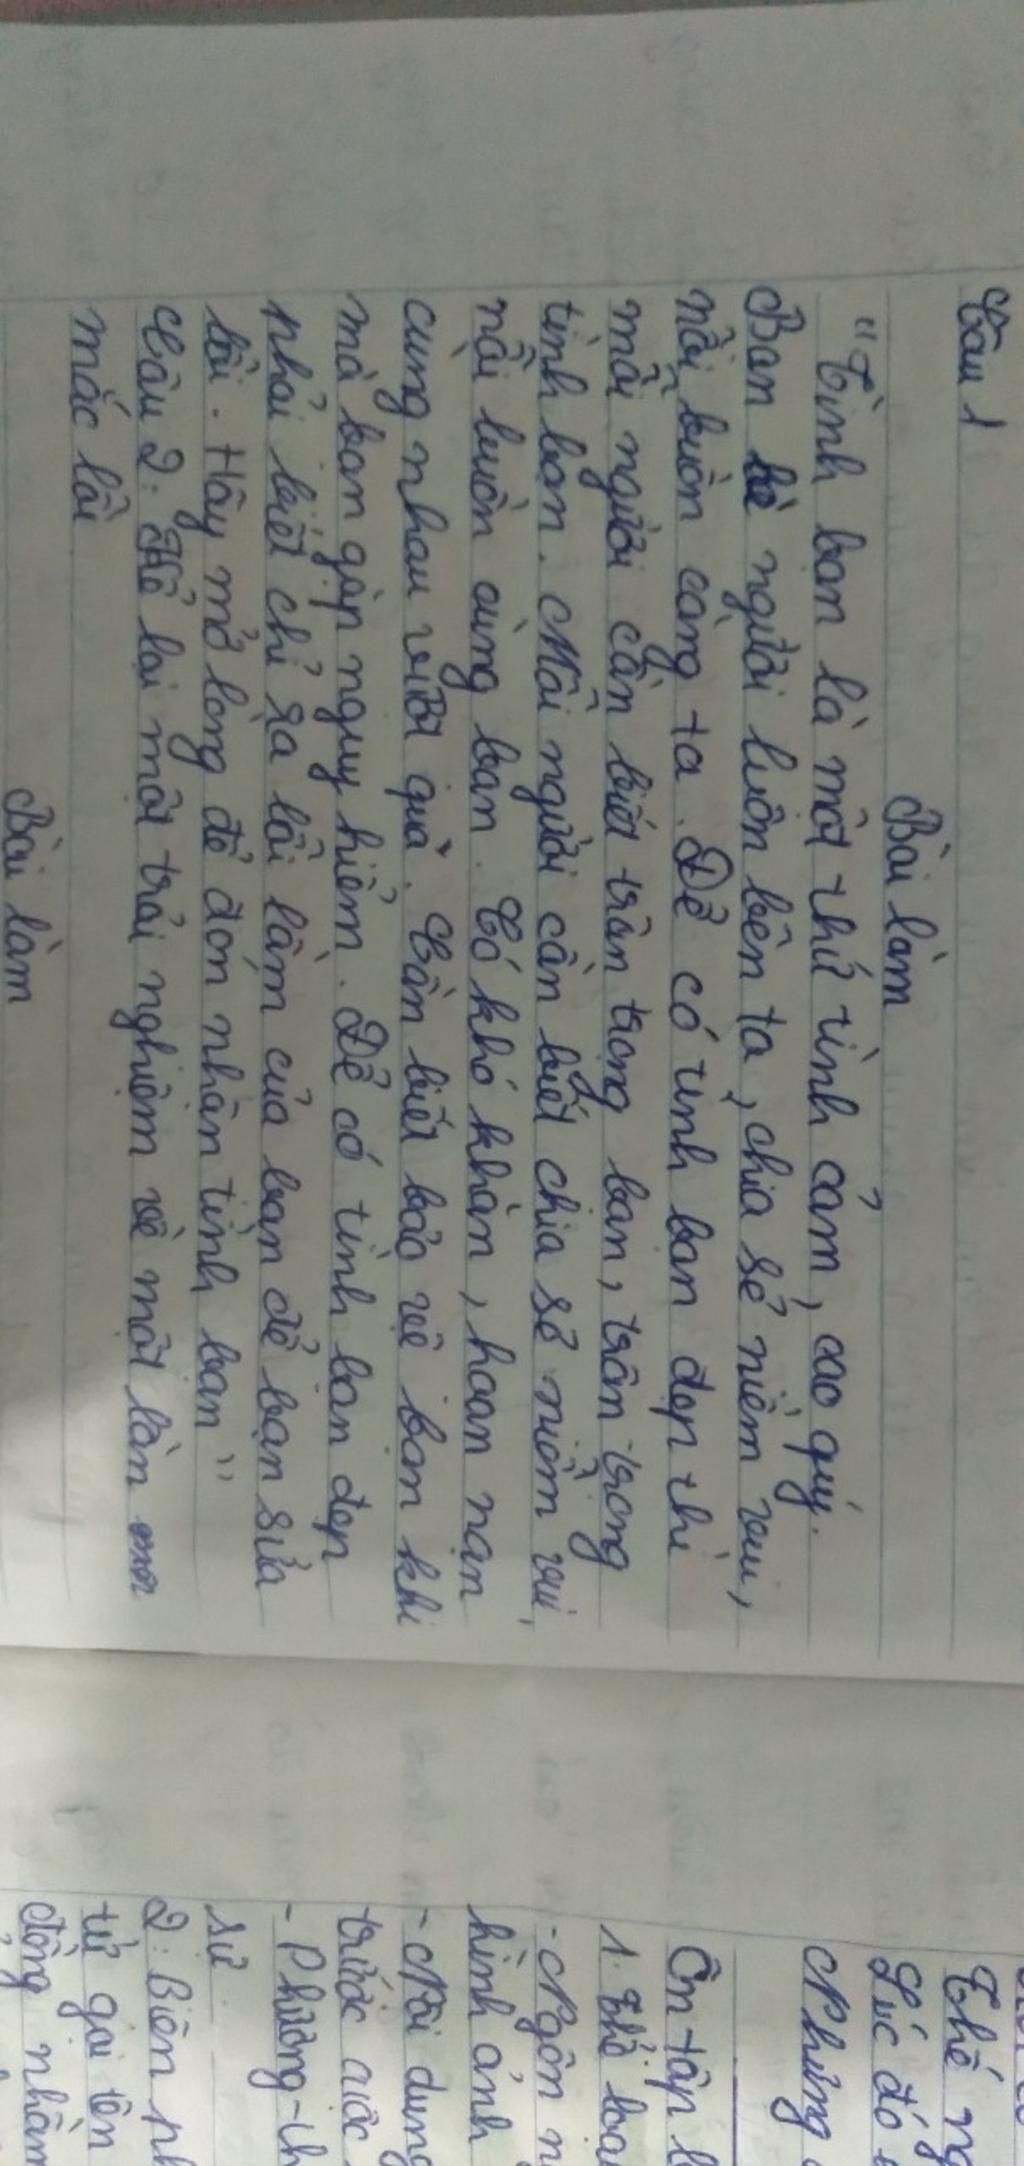 Câu 1
Bài làm
"Tình bạn là một thứ tình cảm, cao quý.
Bạn bè người luôn bên ta, chia sẻ niềm vui,
nỗi buồn cùng ta. Để có tình bạn đẹp thì
mỗi người cần biết trân trọng bạn, trân trọng
tình bạn. Mỗi người cần biết chia sẻ niềm vui,
nỗi buồn cùng bạn. Có khó khăn, hoạn nạn
cùng nhau vượt qua. Cần biết bảo vệ bạn khi
mà bạn gặp nguy hiểm. Để có tình bạn đẹp
phải biết chỉ ra lỗi lầm của bạn để bạn sửa
lỗi. Hãy mở lòng để đón nhận tình bạn"
Câu 2: Kể lại một trải nghiệm về một lần em
mắc lỗi
Bài làm
Thế
Lúc đó
Những
Ôn tập
1. Thể loại
- Ngôn
hình ảnh
- Nội dung
trước cuộc
- Phương
sự
2. Biện
từ gọi tên
động nhằm